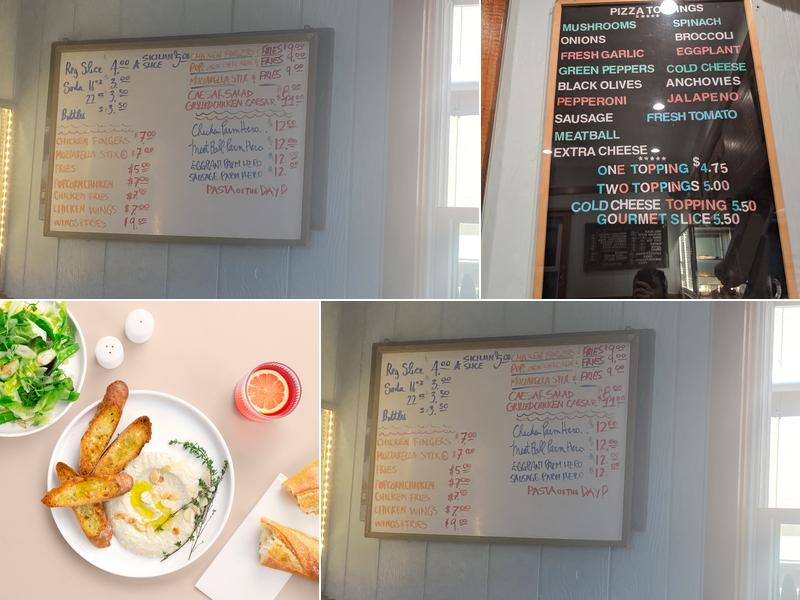 Reg Slice 4.00
A SLICE
SICILIAN $5.00
Soda 16oz 3.00
22oz 3.50
Bottles
CHICKEN FINGERS $7.00
MOZZARELLA STIX
FRIES $5.00
POPCORN CHICKEN $7.00
CHICKEN FRIES $7.00
CHICKEN WINGS $7.00
WINGS & FRIES $9.00
CHICKEN FINGERS & FRIES $9.00
FRIES 9.00
MOZZARELLA STIX & FRIES 9.00
CAESAR SALAD
GRILLED CHICKEN CAESAR
Chicken Parm Hero
Meat Ball Parm Hero
EGGPLANT PARM HERO
SAUSAGE PARM HERO
PASTA OF THE DAY
PIZZA TOPPINGS
*****
MUSHROOMS SPINACH
ONIONS BROCCOLI
FRESH GARLIC EGGPLANT
GREEN PEPPERS COLD CHEESE
BLACK OLIVES ANCHOVIES
PEPPERONI JALAPENO
SAUSAGE FRESH TOMATO
MEATBALL
EXTRA CHEESE
*****
ONE TOPPING $4.75
TWO TOPPINGS 5.00
COLD CHEESE TOPPING 5.50
GOURMET SLICE 5.50
Reg Slice 4.00
A SLICE
SICILIAN $5.00
Soda 16oz 3.00
22oz 3.50
Bottles
CHICKEN FINGERS $7.00
MOZZARELLA STIX
FRIES $5.00
POPCORN CHICKEN $7.00
CHICKEN FRIES $7.00
CHICKEN WINGS $7.00
WINGS & FRIES $9.00
CHICKEN FINGERS & FRIES $9.00
FRIES 9.00
MOZZARELLA STIX & FRIES 9.00
CAESAR SALAD
GRILLED CHICKEN CAESAR
Chicken Parm Hero
Meat Ball Parm Hero
EGGPLANT PARM HERO
SAUSAGE PARM HERO
PASTA OF THE DAY